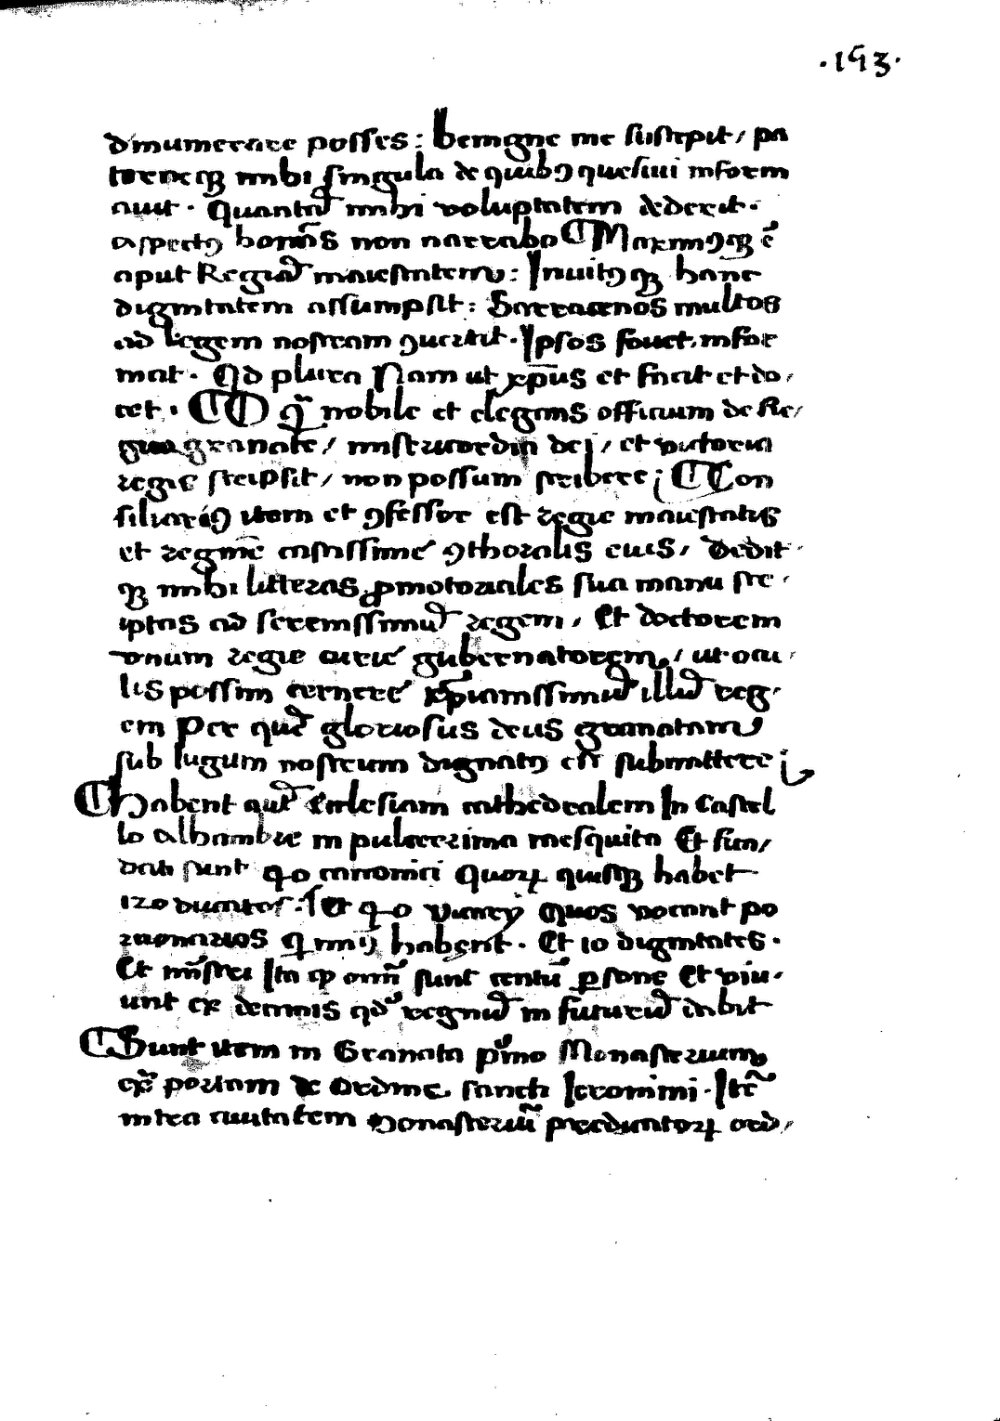 .193.
dinumerare posses: Benigne me suscepit/ pa
terneqꝫ mihi singula de quibꝰ quesiui inform
auit. Quantā mihi voluptatem dederit.
aspectꝰ hominis non narrabo Maximꝰqꝫ ē
aput Regiā maiestatem: Inuitꝰqꝫ hanc
dignitatem assumpsit: Sarracenos multos
ad legem nostram ꝯuertit. Ipsos fouet, infor
mat. Qd plura Nam ut xp̄us et facit et do/
cet. Q̄ nobile et elegans officium de Re/
gno granate/ misericordia dei/ et victoria
regis scripsit/ non possum scribere; Con
siliariꝰ item et ꝯfessor est regie maiestatis
et regine castissime ꝯthoralis eius/ Dedit
qꝫ mihi litteras ꝓmotoriales sua manu scr/
iptas ad serenissimū regem/ Et doctorem
vnum regie curie gubernatorem/ ut ocu/
lis possim cernere xp̄ianissimū illū reg/
em Per quē gloriosus deus granatam
sub Iugum nostrum dignatꝰ est submittere;
Habent autē Ecclesiam cathedralem In Castel
lo Alhambre in pulcerrima mesquita Et fun/
dati sunt 40 canonici Quoꝝ quisqꝫ habet
120 ducatos. Et 40 vicarij Quos vocant po
rcionarios q̄ minꝰ habent. Et 10 dignitates.
Et ministri Ita ꝙ omnes sunt centū ꝑsone Et viu/
unt ex decimis qd̄ regnū in futurū dabit
Sunt item in Granata primo Monasterium
extra portam de Ordine sancti Ieronimi. Itē
intra ciuitatem Monasteriū predicatoꝝ ord/